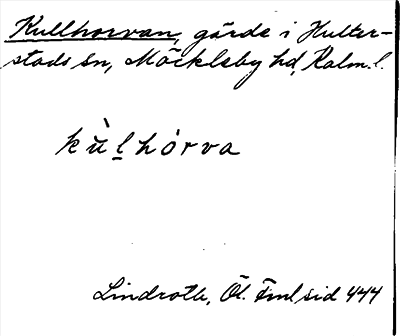 Kullhorvan, gärde i Hulter-
stads sn, Möckleby hd, Kalm. l.
kùl̠hórva
Lindroth, Öl. Fml sid 444